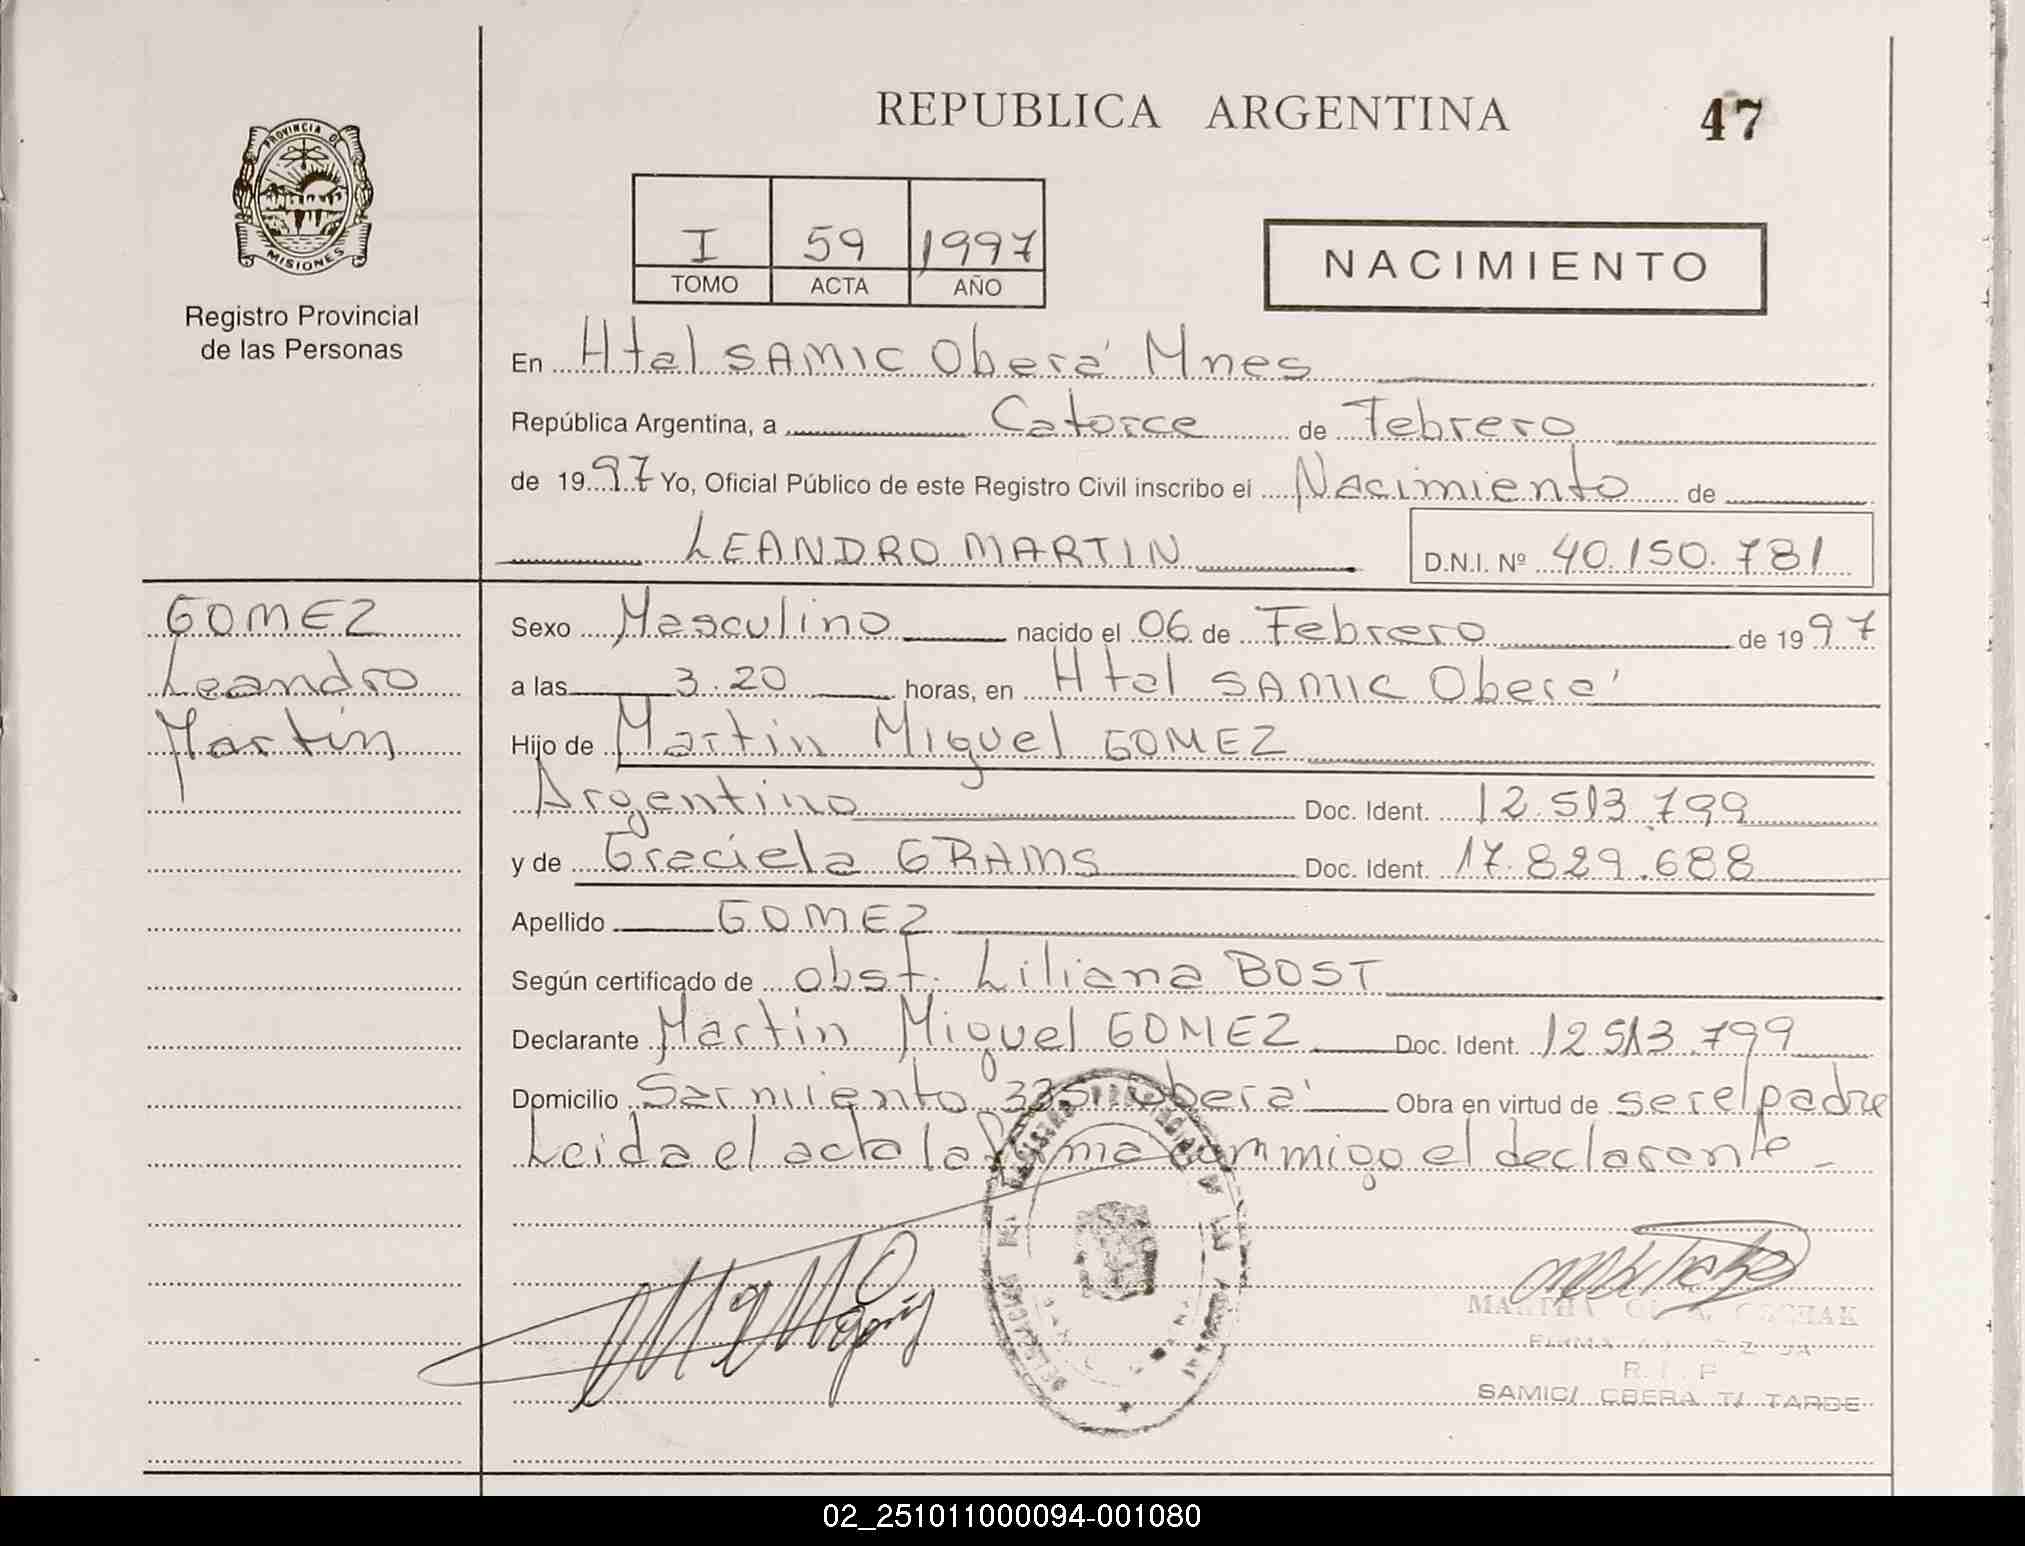 REPUBLICA ARGENTINA
47
PROVINCIA DE
MISIONES
Registro Provincial
de las Personas
I 59 1997
TOMO ACTA AÑO
NACIMIENTO
En Htal SAMIC Oberá Mnes
República Argentina, a Catorce de Febrero
de 1997 Yo, Oficial Público de este Registro Civil inscribo el Nacimiento de
LEANDRO MARTIN D.N.I. Nº 40.150.781
GOMEZ
Leandro
Martín
Sexo Masculino nacido el 06 de Febrero de 1997
a las 3.20 horas, en Htal SAMIC Oberá
Hijo de Martin Miguel GOMEZ
Argentino Doc. Ident. 12.513.799
y de Graciela GRAMS Doc. Ident. 17.829.688
Apellido GOMEZ
Según certificado de obst. Liliana BOST
Declarante Martin Miguel GOMEZ Doc. Ident. 12513.799
Domicilio Sarmiento 335 Oberá Obra en virtud de ser el padre
Leida el acta la firma conmmigo el declarante
SAMIC/ OBERA T/ TARDE
02_251011000094-001080